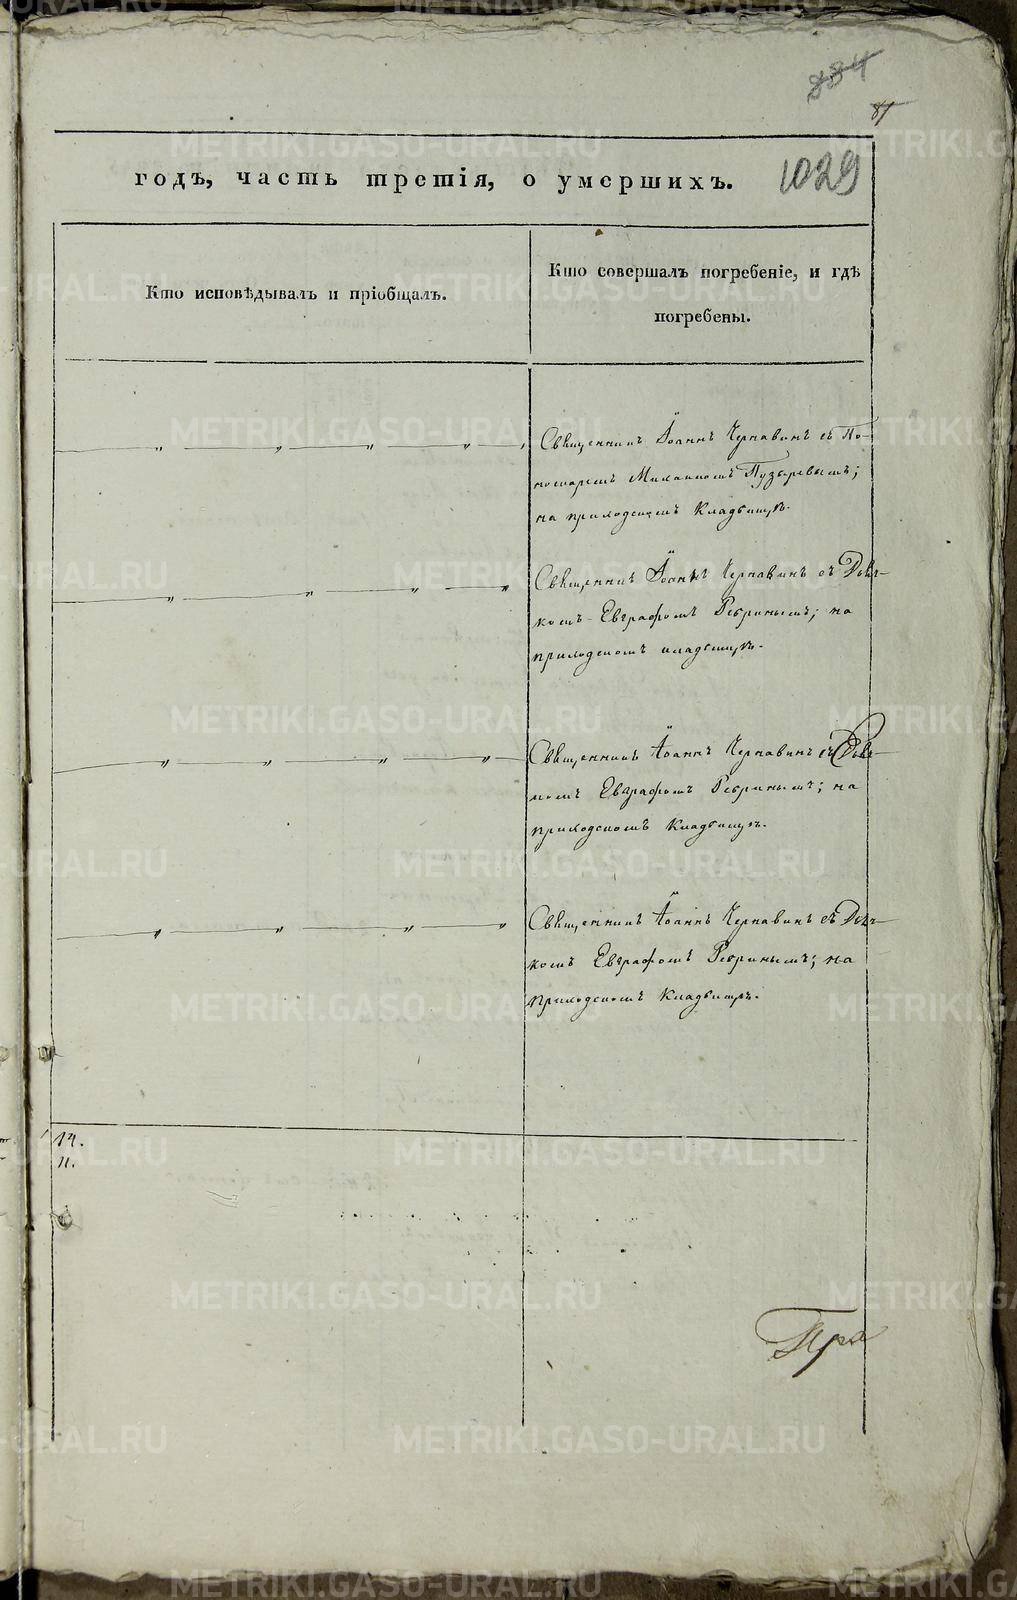 884
81
годъ, часть третія, о умершихъ.
1029
Кто исповѣдывалъ и пріобщалъ.
Кто совершалъ погребеніе, и гдѣ
погребены.
Священникъ Іоаннъ Чернавинъ съ По-
номаремъ Михаиломъ Пузыревымъ;
на приходскомъ Кладбищѣ.
Священникъ Іоаннъ Чернавинъ съ Дьяч-
комъ Евграфомъ Ребринымъ; на
приходскомъ кладбищѣ.
Священникъ Іоаннъ Чернавинъ съ Дьяч-
комъ Евграфомъ Ребринымъ; на
приходскомъ Кладбищѣ.
Священникъ Іоаннъ Чернавинъ съ Дьяч-
комъ Евграфомъ Ребринымъ; на
приходскомъ Кладбищѣ.
14.
11.
METRIKI.GASO-URAL.RU